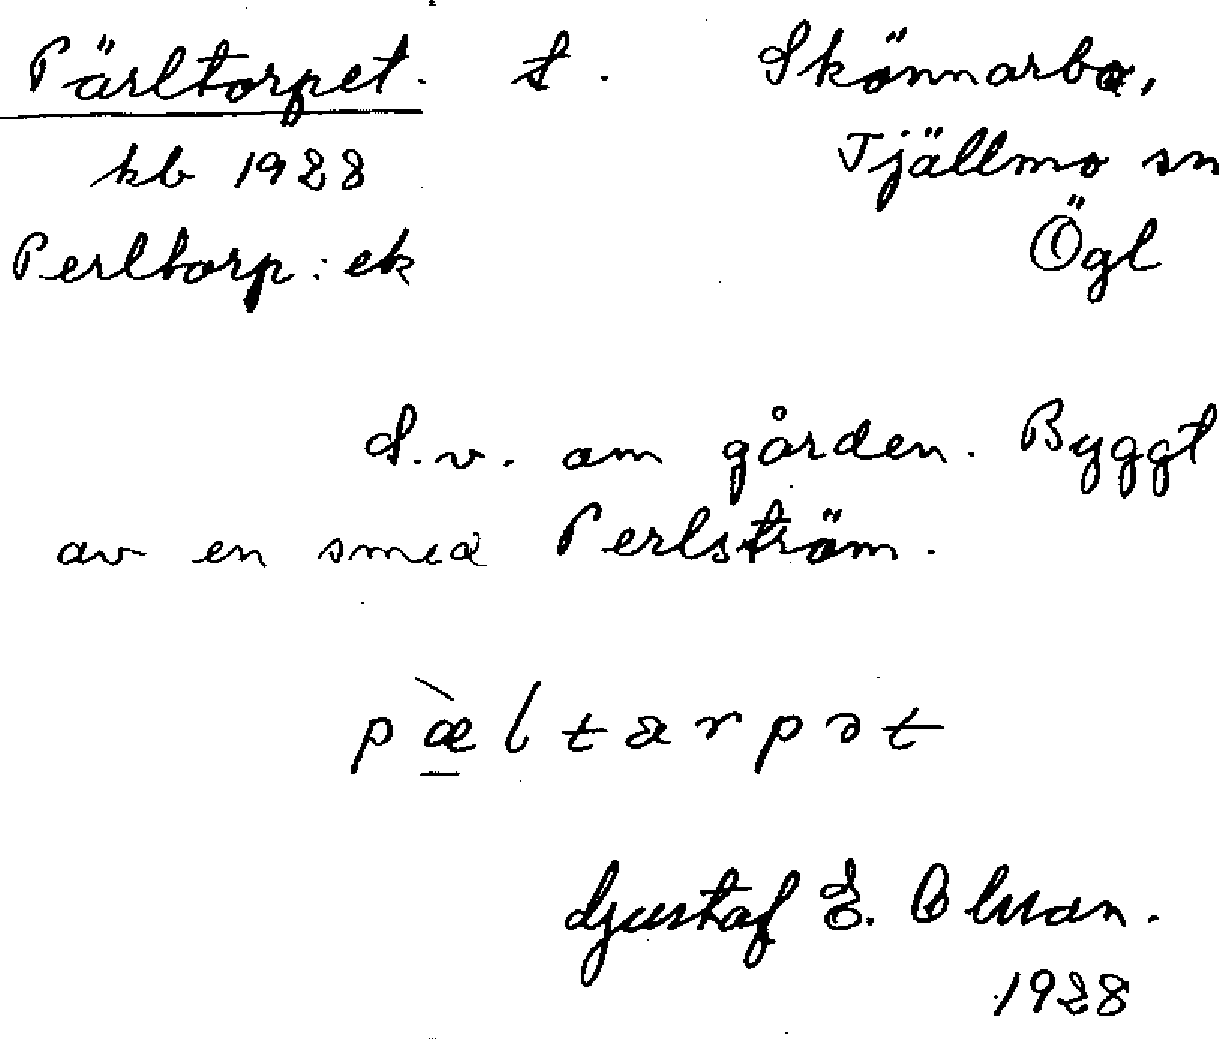 Pärltorpet. t. Skönnarbo,
kb 1928 Tjällmo sn
Perltorp: ek Ögl
S.v. om gården. Byggt
av en smed Perlström.
pæ̀ltarpət
Gustaf E. Olsson.
1928